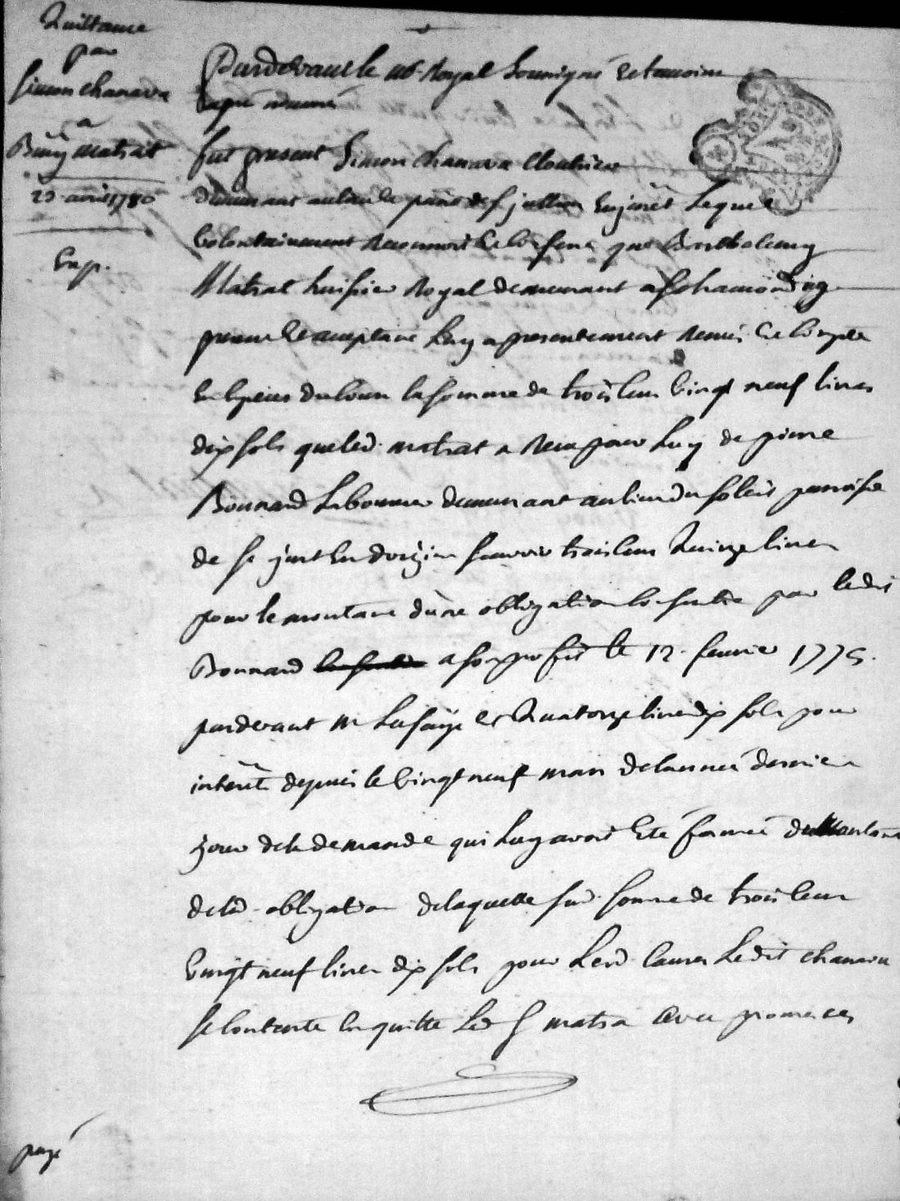 Quittance
par
Simon chanava
a
Bmy matrat
23 avril 1780
Exp.
Pardevant le no.re Royal Soussigné et temoins
apres nommés
fut present Simon chanava cloutier
demeurant au lieu de parse de st jullien en jarêt Lequel
volontairement reconnoit et confesse que Barthelemy
Matrat huissier Royal demeurant a st chamond icy
present et acceptant Luy a presentement remis et compté
en especes du cours la somme de trois cent vingt neuf livres
dix sols que led. matrat a reçu pour Luy de pierre
Bonnand Laboureur demeurant au lieu du soleis parroisse
de st just en doizieu scavoir trois cent Quinze livres
pour le montant d'une obligation consentie par ledit
Bonnand a son profit le 12. fevrier 1775.
pardevant me Lafaije et Quatorze livres dix sols pour
interêts depuis le vingt neuf mars de l'année derniere
jour de la demande qui Luy avoit eté formée du montant
de lad. obligation de laquelle sud. somme de trois cent
vingt neuf livres dix sols pour Lesd. causes Ledit chanava
se contente en quitte Led. s. matra avec promesses
payé